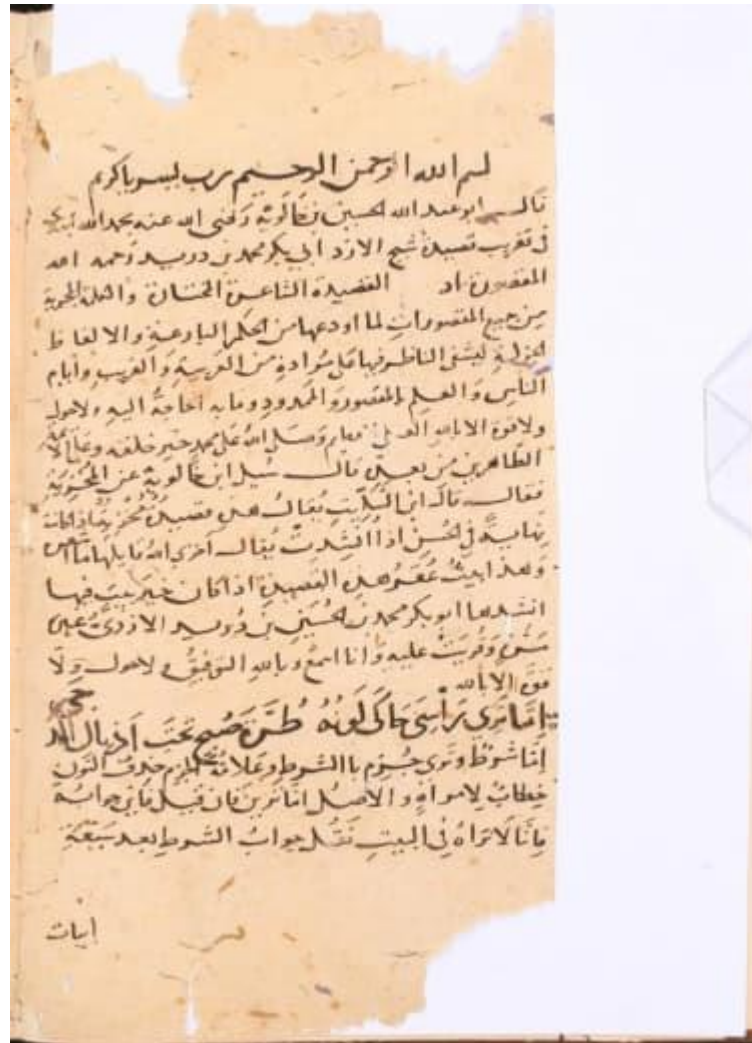 بسم الله الرحمن الرحيم رب يسر يا كريم
قال ابو عبد الله الحسين بن خالويه رضى الله عنه بحمد الله نبتدي
في تقريب قصيدة شيخ الازد ابي بكر محمد بن دريد رحمه الله
المقصورة اد القصيدة الشاعرة الحسان
من جميع المقصورات لما اودعها من الحكم البارعة والالفاظ
الجزلة ليشفى الناظر فيها على مراده من العربية والغريب وايام
الناس والعلم بالمقصور والممدود وما به احاجة اليه ولا حول
ولا قوة الا بالله العلي وصلى الله على محمد خير خلقه وعلى الائمة
الطاهرين من بعده قال سئل ابن خالويه عن المخزية
فقال قال ابن السكيت يقال هذه قصيدة مخزية اذا كانت
نهاية في الحسن اذا انشدت يقال اخزى الله قايلها ما اشعره
وهذا بيت عقر هذه القصيدة اذا كان خير بيت فيها
انشدها ابو بكر محمد بن الحسين بن دريد الازدي
وقريت عليه وانا اسمع وبالله التوفيق ولا حول ولا
قوة الا بالله
اما ترى راسى حاكى لونه طرة صبح تحت اذيال الدجى
اما شرط وترى جزم بالشرط وعلامة الجزم حذف النون
خطاب لامراة والاصل اما ترين فان قيل فاين جوابه
فانا لا نراه في البيت فقل جواب الشرط بعد سبعة
ابيات